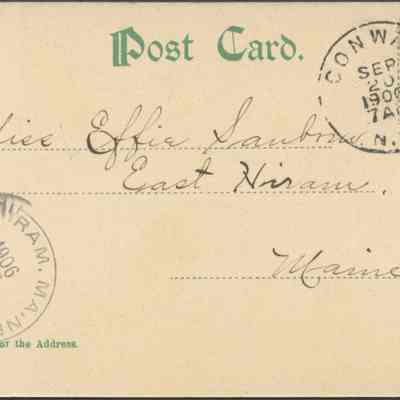 Post Card.
CONWA
SEP
20
1906
7A
N.
iss Effie Sanborn
East Hiram,
Maine
IRAM. MAIN
1906
or the Address.